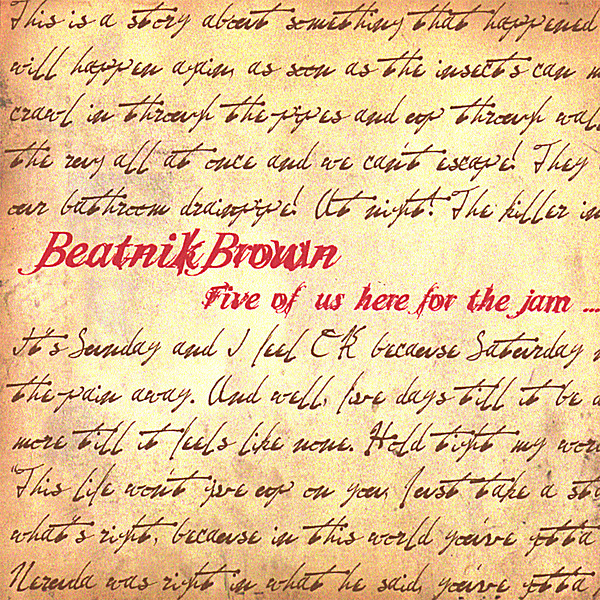 This is a story about something that happened
will happen again, as soon as the insects can m
crawl in through the pipes and up through wall
the rug all at once and we can't escape! They
our bathroom drainpipe! At night! The killer in
Beatnik Brown
Five of us here for the jam ...
It's Sunday and I feel OK because Saturday
the pain away. And well, five days till it be a
more till it feels like none. Hold tight my wor
This life won't give up on you, just take a st
what's right, because in this world you've gotta
Neruda was right in what he said, you've gotta